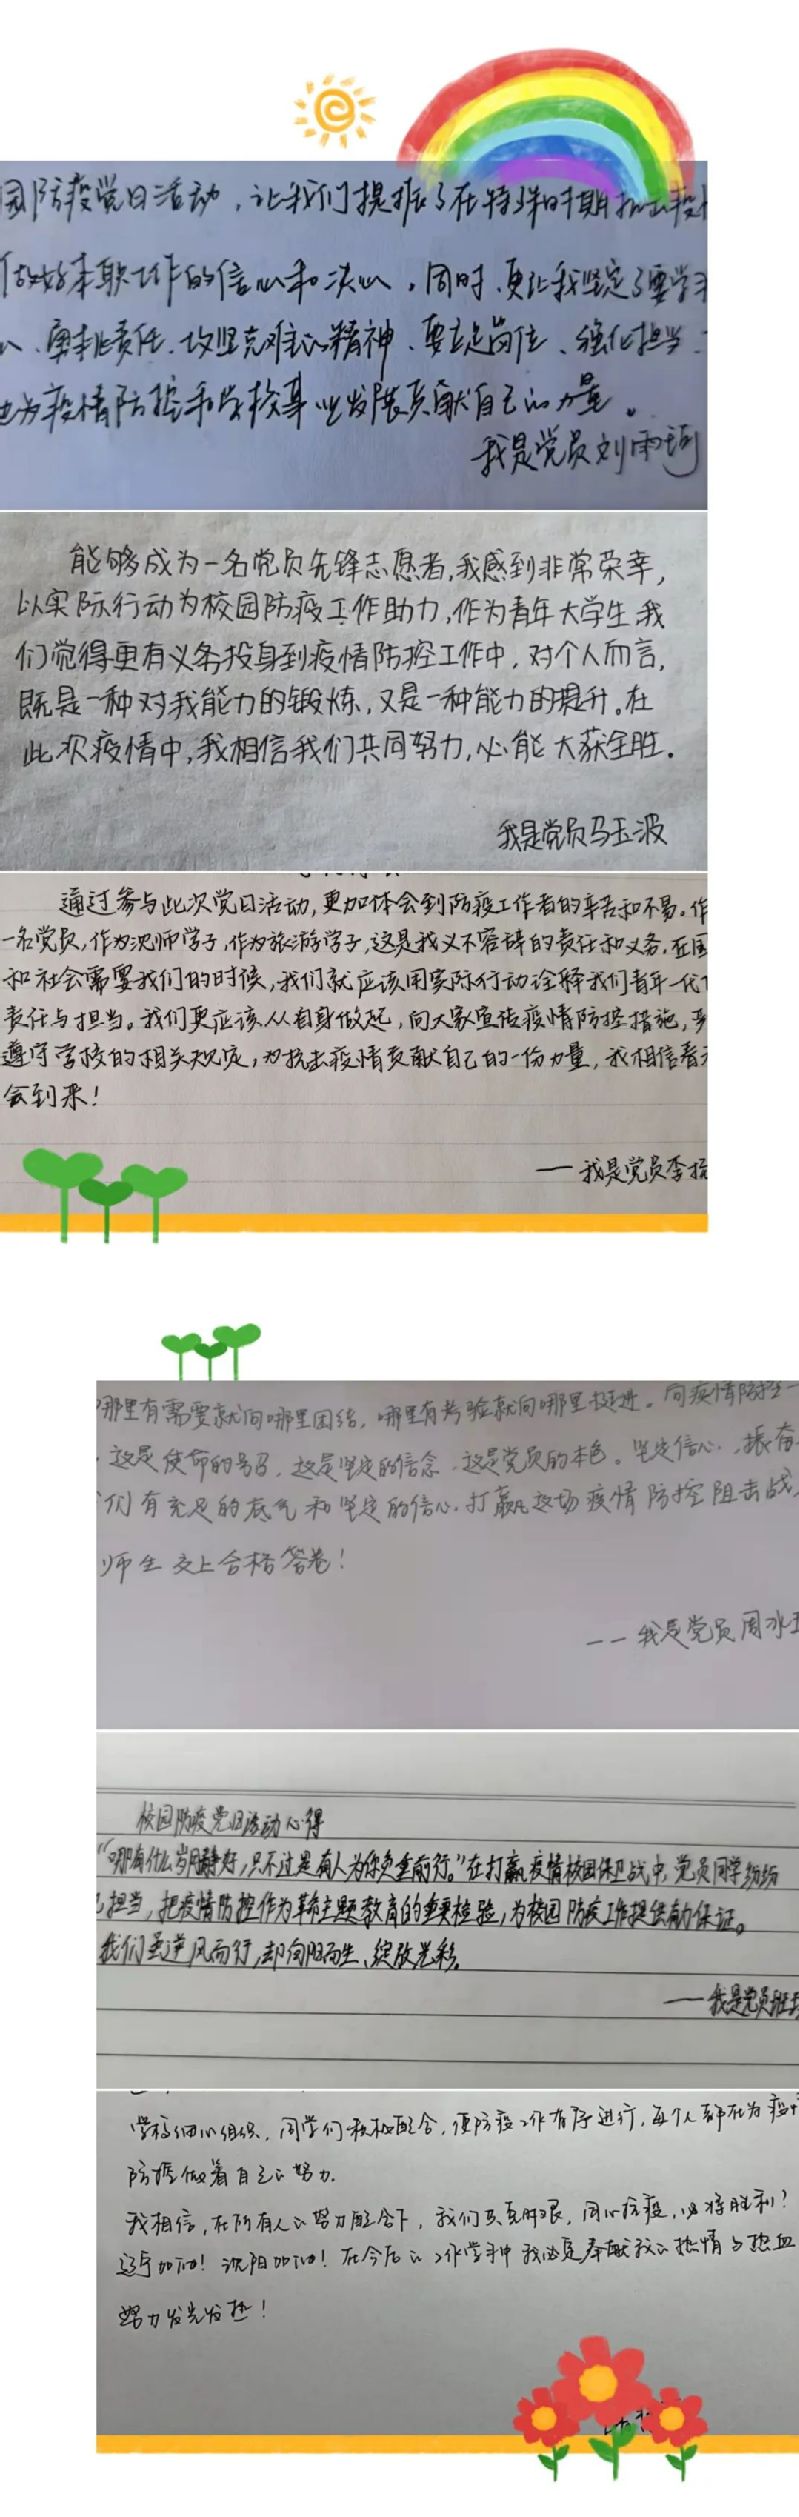 园防疫党日活动，让我们提振了在特殊时期抗击疫
做好本职工作的信心和决心，同时，更让我坚定了要学习
、勇担责任、攻坚克难的精神、要立足岗位、强化担当
为疫情防控和学校事业发展贡献自己的力量。
我是党员刘雨珂
能够成为一名党员先锋志愿者，我感到非常荣幸，
以实际行动为校园防疫工作助力，作为青年大学生我
们觉得更有义务投身到疫情防控工作中，对个人而言，
既是一种对我能力的锻炼，又是一种能力的提升。在
此次疫情中，我相信我们共同努力，必能大获全胜。
我是党员马玉波
通过参与此次党日活动，更加体会到防疫工作者的辛苦和不易。作
一名党员，作为沈师学子，作为旅游学子，这是我义不容辞的责任和义务。在国
和社会需要我们的时候，我们就应该用实际行动诠释我们青年一代
责任与担当。我们更应该从自身做起，向大家宣传疫情防控措施，
遵守学校的相关规定，为抗击疫情贡献自己的一份力量，我相信春
会到来！
——我是党员李
哪里有需要就向哪里团结，哪里有考验就向哪里挺进。向疫情防控一
，这是使命的号召，这是坚定的信念，这是党员的本色。坚定信心，振奋
们有充足的底气和坚定的信心，打赢这场疫情防控阻击战，
师生交上合格答卷！
——我是党员周冰
校园防疫党日活动心得
“哪有什么岁月静好，只不过是有人为你负重前行。”在打赢疫情校园保卫战中，党员同学纷纷
担当，把疫情防控作为革命主题教育的重要检验，为校园防疫工作提供有力保证。
我们虽逆风而行，却向阳而生、绽放光彩。
——我是党员班
学校细心组织，同学们积极配合，使防疫工作有序进行，每个人都在为疫情
防控做着自己的努力。
我相信，在所有人的努力配合下，我们共克时艰，同心抗疫，必将胜利？
辽宁加油！沈阳加油！在今后的工作学习中我必定奉献我的热情与热血
努力发光发热！